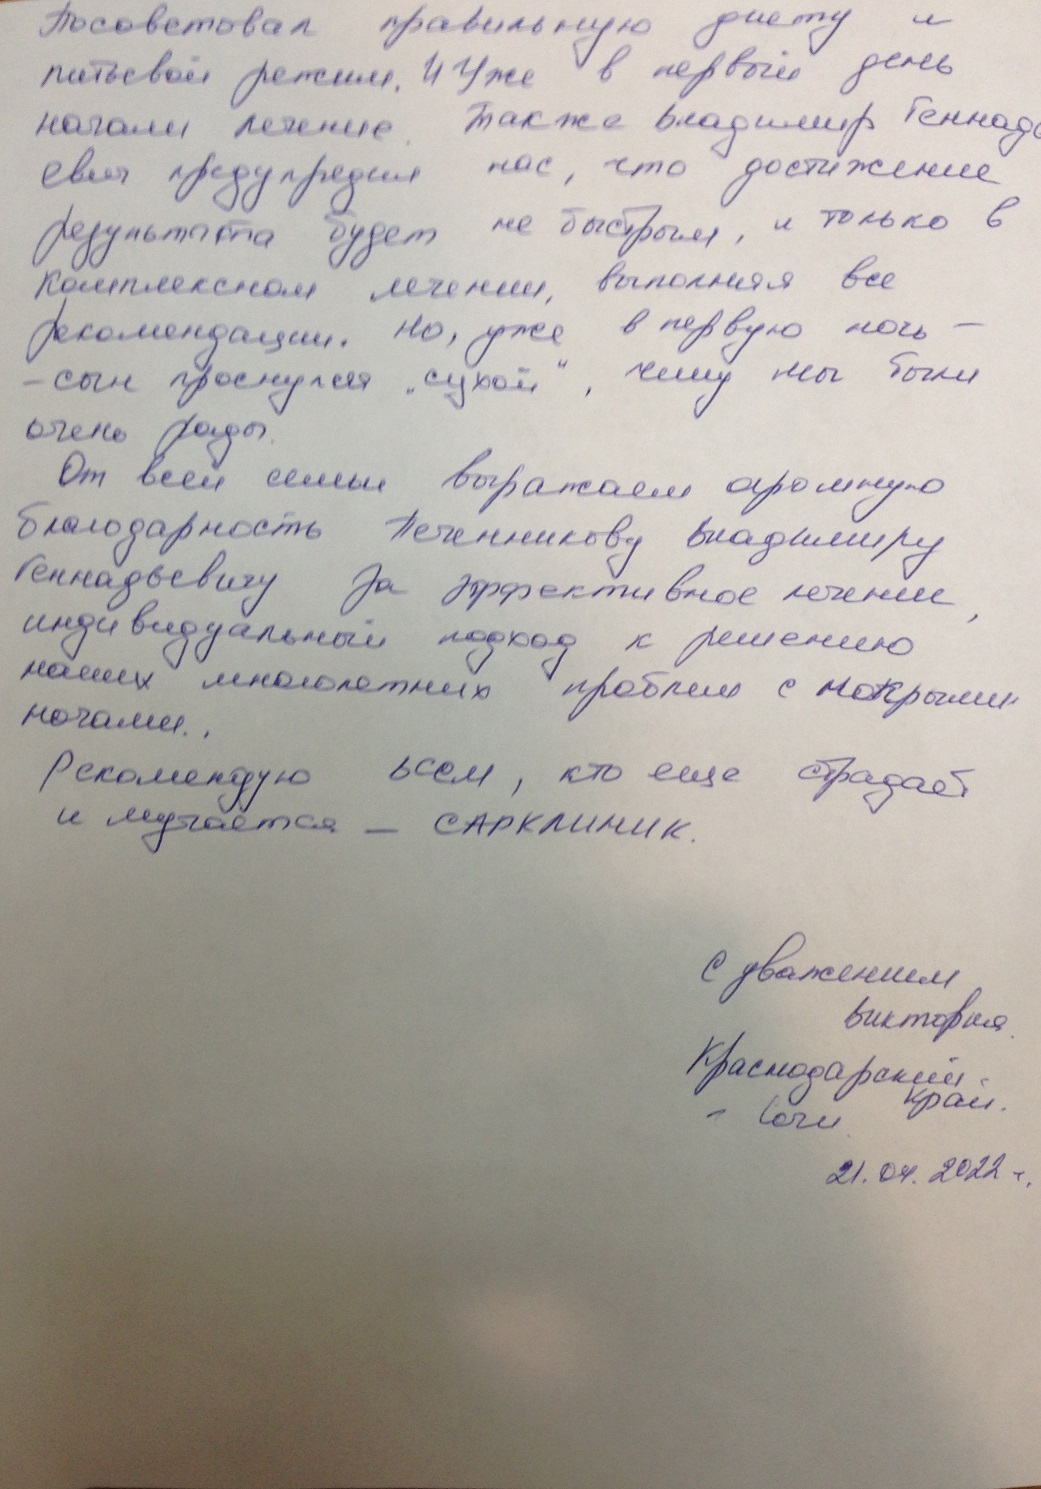 Посоветовал правильную диету и
питьевой режим. И Уже в первый день
начали лечение. Также Владимир Геннадь
евич предупредил нас, что достижение
результата будет не быстрым, и только в
комплексном лечении, выполняя все
рекомендации. Но, уже в первую ночь –
– сын проснулся „сухой“, чему мы были
очень рады.
От всей семьи выражаем огромную
благодарность Печенникову Владимиру
Геннадьевичу за эффективное лечение,
индивидуальный подход к решению
наших многолетних проблем с мокрыми
ночами..
Рекомендую всем, кто еще страдает
и мучается – САРКЛИНИК.
С уважением
Виктория.
Краснодарский
край.
- Сочи
21.04.2022 г.